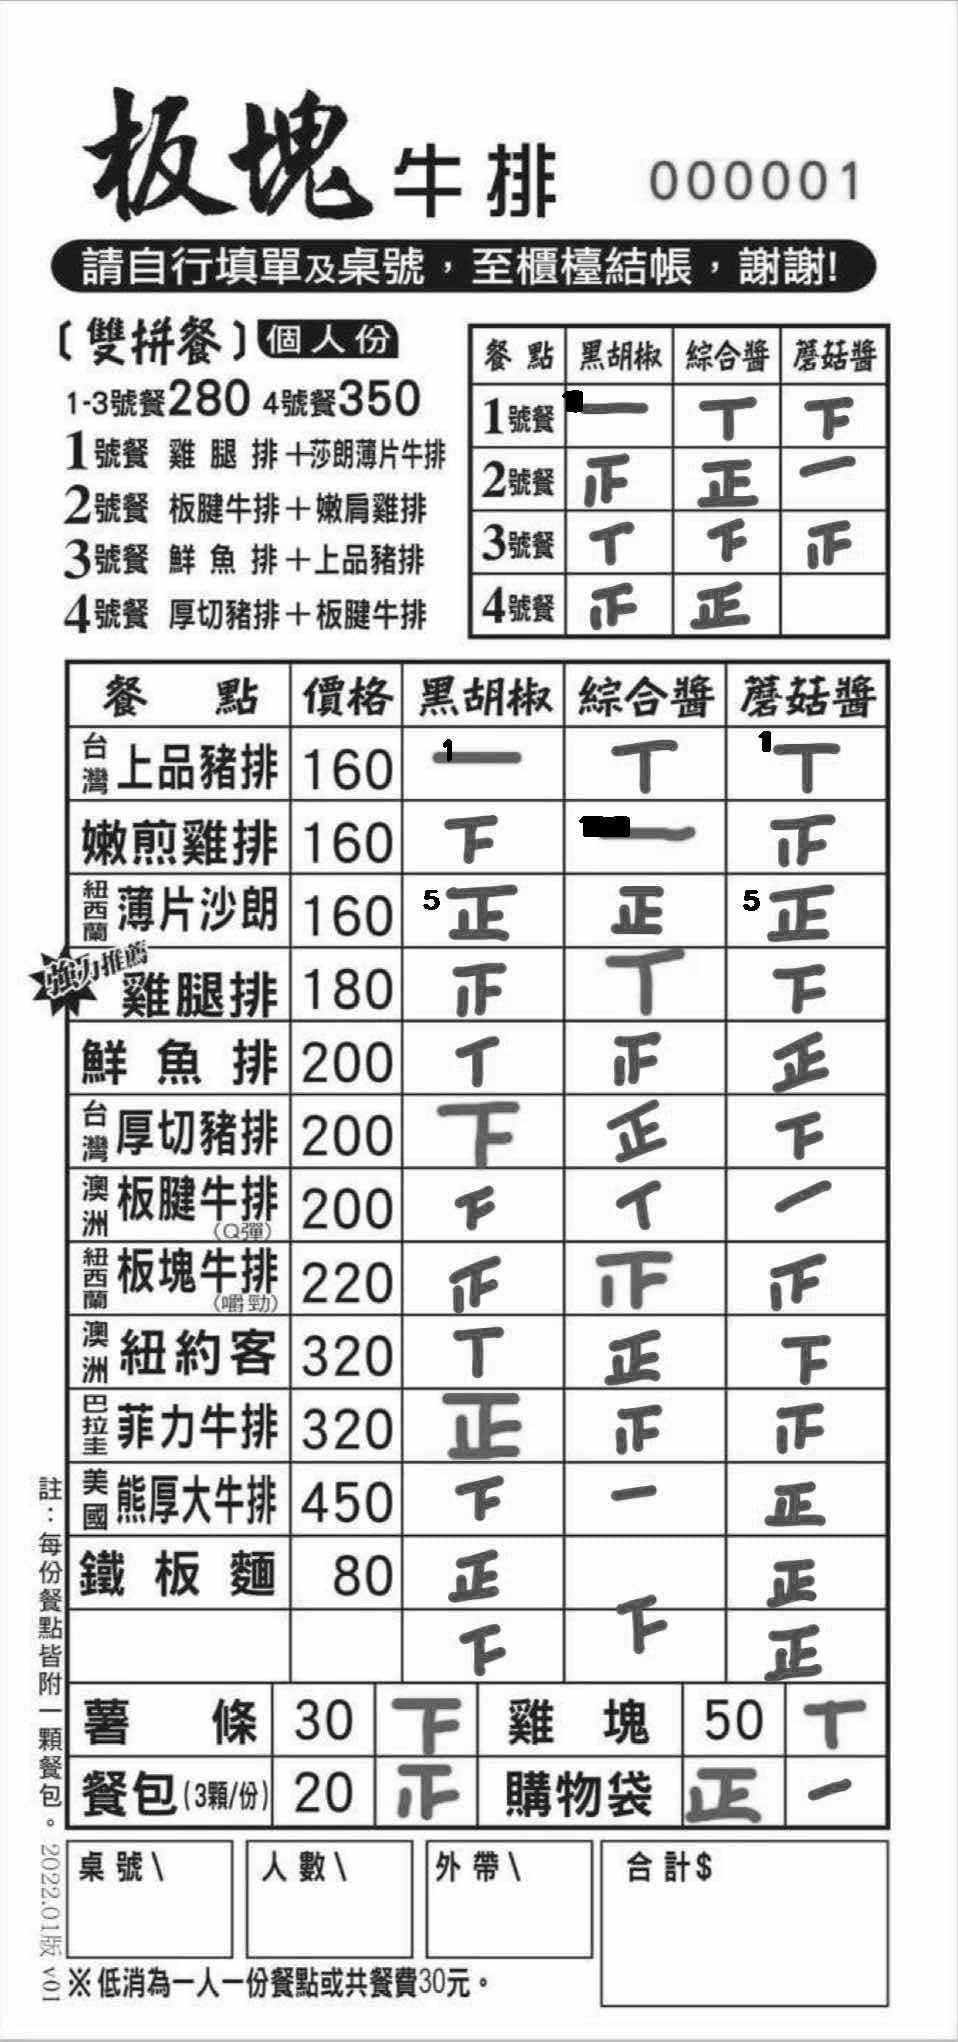 板塊牛排 000001
請自行填單及桌號，至櫃檯結帳，謝謝!
〔雙拼餐〕個人份
1-3號餐280 4號餐350
1號餐 雞腿排＋莎朗薄片牛排
2號餐 板腱牛排＋嫩肩雞排
3號餐 鮮魚排＋上品豬排
4號餐 厚切豬排＋板腱牛排
餐點 黑胡椒 綜合醬 蘑菇醬
1號餐 一 丅 下
2號餐 正 正 一
3號餐 丅 下 正
4號餐 正 正
餐點 價格 黑胡椒 綜合醬 蘑菇醬
台灣 上品豬排 160 1 一 丅 1 丅
嫩煎雞排 160 下 一 正
紐西蘭 薄片沙朗 160 5 正 正 5 正
強力推薦 雞腿排 180 正 丅 下
鮮魚排 200 丅 正 正
台灣 厚切豬排 200 下 正 下
澳洲 板腱牛排(Q彈) 200 下 丅 一
紐西蘭 板塊牛排(嚼勁) 220 正 正 正
澳洲 紐約客 320 丅 正 下
巴拉圭 菲力牛排 320 正 正 正
美國 熊厚大牛排 450 下 一 正
鐵板麵 80 正 下 正
下 正
薯條 30 下 雞塊 50 丅
餐包(3顆/份) 20 正 購物袋 正 一
桌號\ 人數\ 外帶\ 合計$
※低消為一人一份餐點或共餐費30元。
註：每份餐點皆附一顆餐包。2022.01版 v01